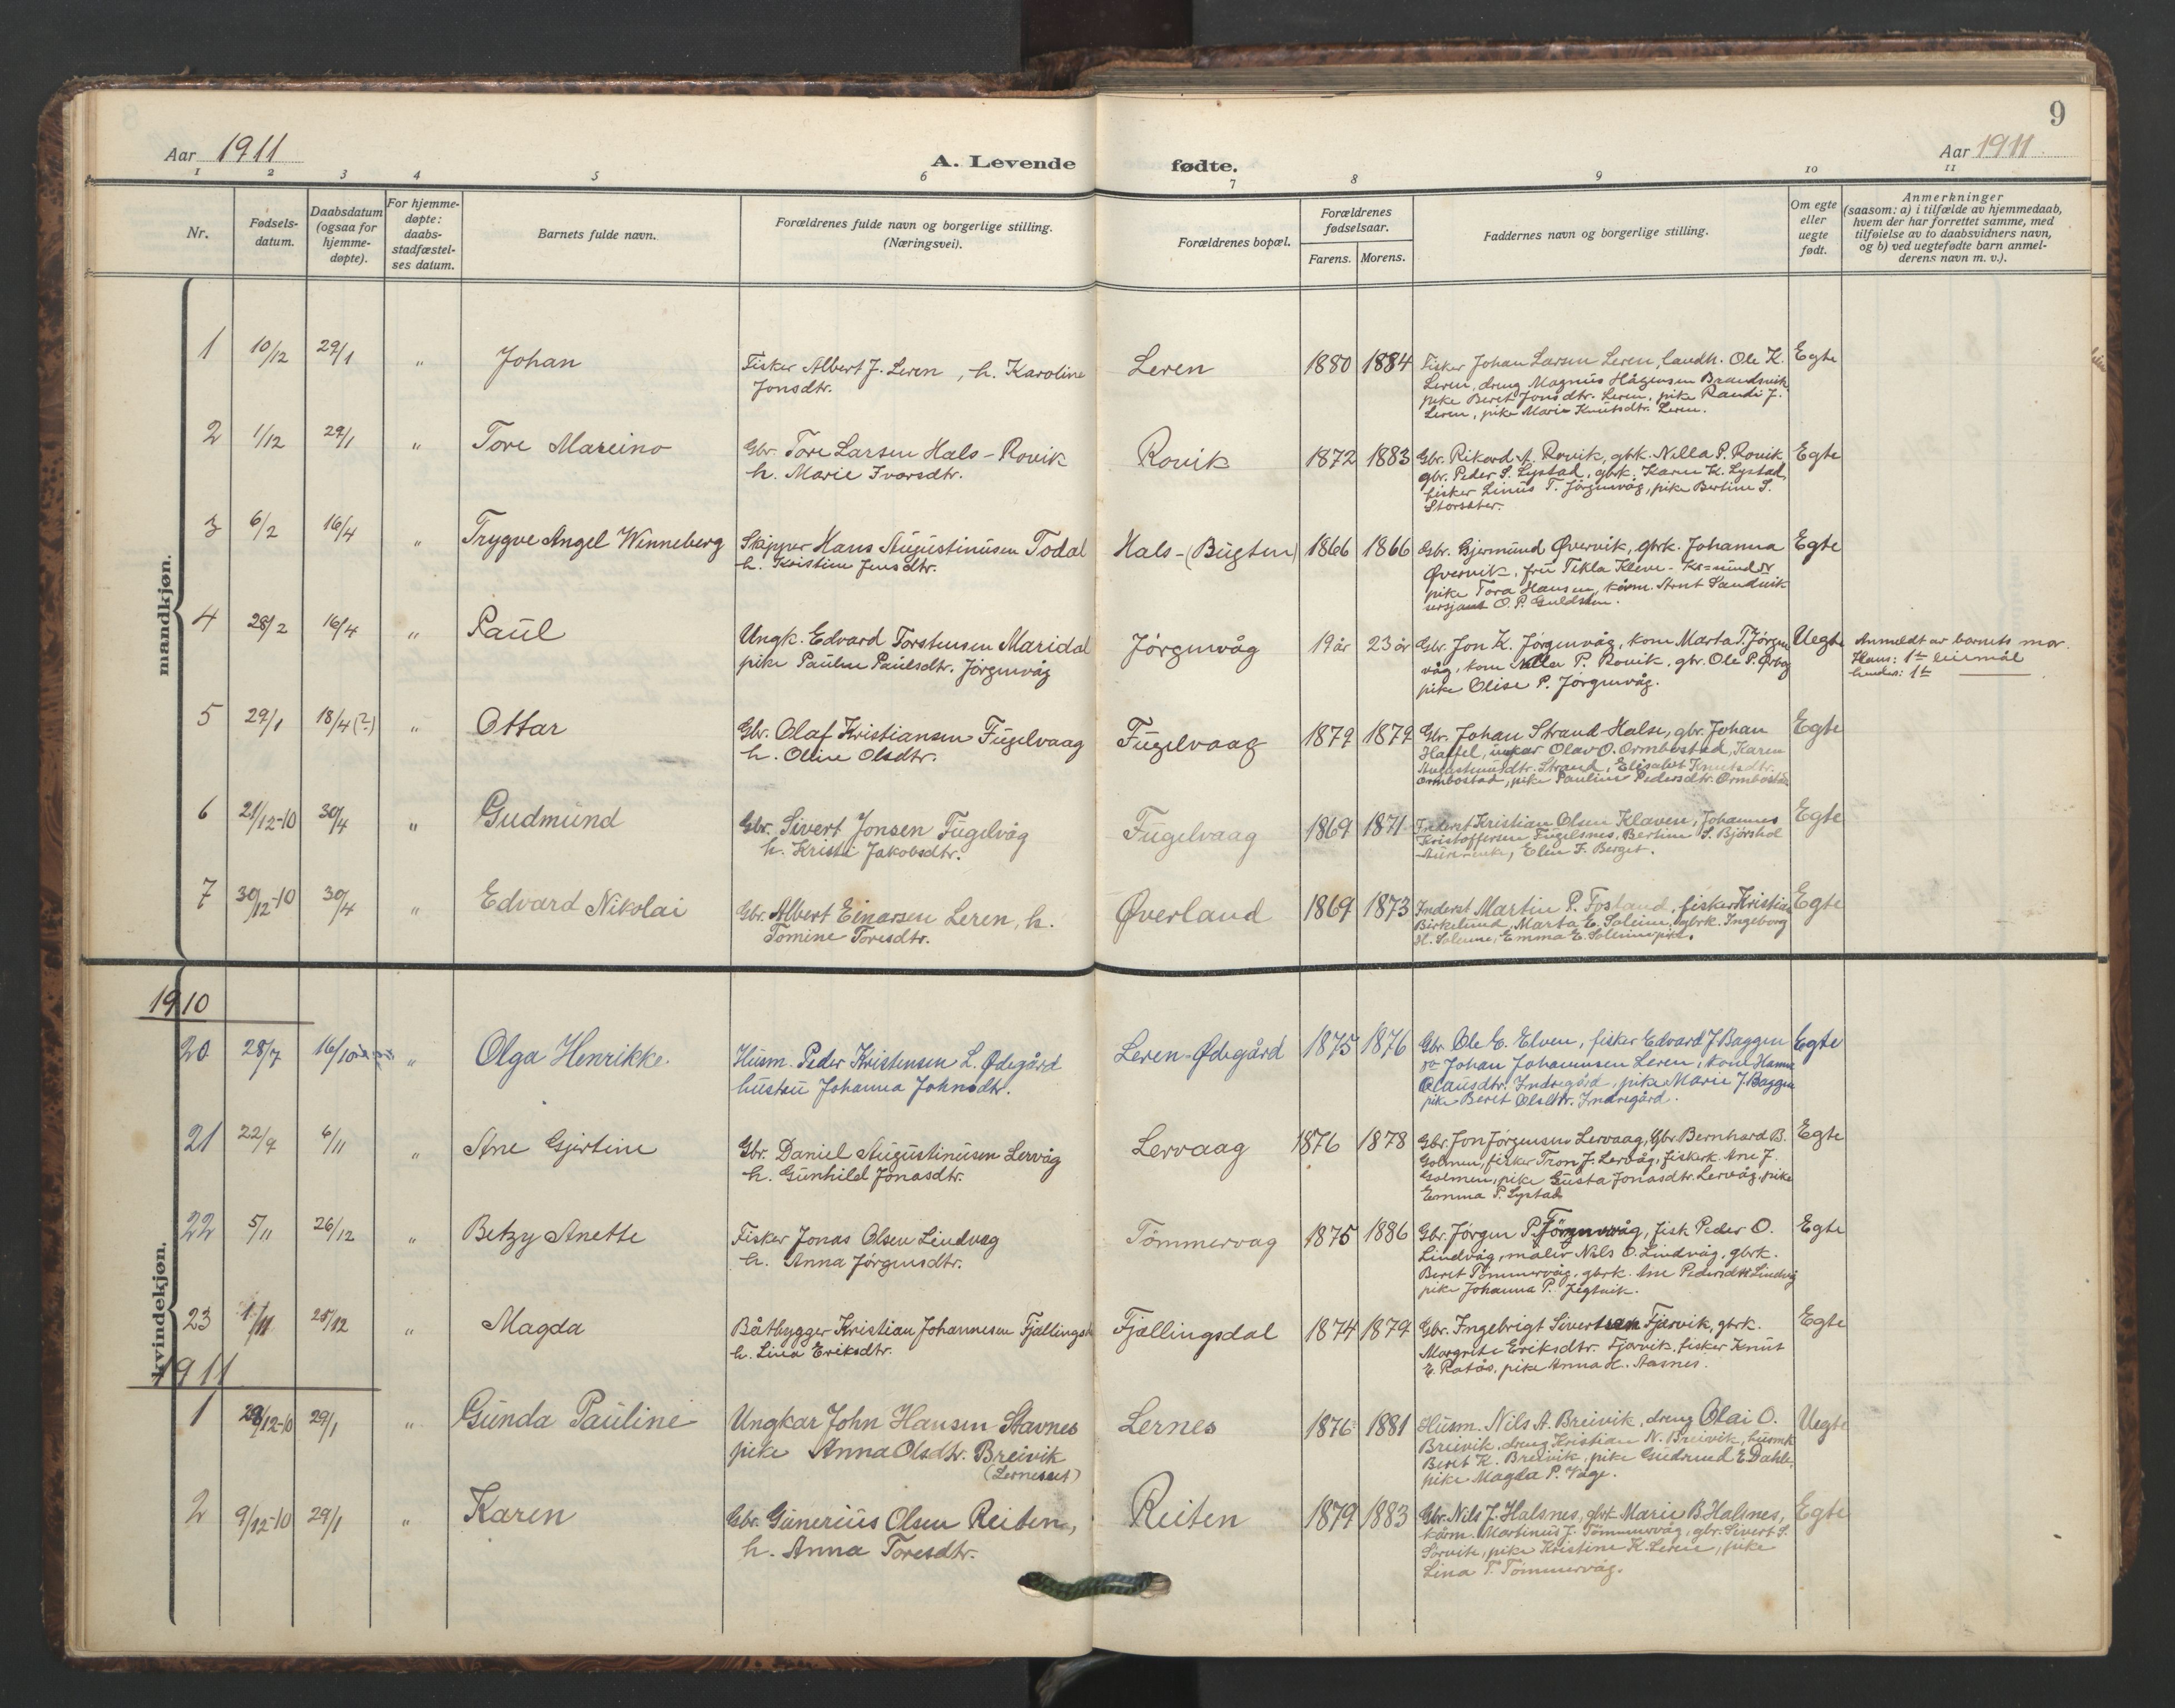 9
Aar 1911
A. Levende fødte.
Aar 1911
1 2 3 4 5 6 7 8 9 10 11
Nr.
Fødsels-
datum.
Daabsdatum
(ogsaa for
hjemme-
døpte).
For hjemme-
døpte:
daabs-
stadfæstel-
ses datum.
Barnets fulde navn.
Forældrenes fulde navn og borgerlige stilling.
(Næringsvei).
Forældrenes bopæl.
Forældrenes
fødselsaar.
Farens. Morens.
Faddernes navn og borgerlige stilling.
Om egte
eller
uegte
født.
Anmerkninger
(saasom: a) i tilfælde av hjemmedaab,
hvem der har forrettet samme, med
tilføielse av to daabsvidners navn,
og b) ved uegtefødte barn anmel-
derens navn m. v.).
mandkjøn.
1 10/12 29/1 " Johan
Fisker Albert J. Leren, h. Karoline
Jonsdtr.
Leren 1880 1884
Fisker Johan Larsen Leren, landh. Ole K.
Leren, dreng Magnus Hågensen Brandsvik
pike Beret Jonsdtr. Leren, pike Randi J.
Leren, pike Marie Knutsdtr. Leren.
Egte
2 1/12 29/1 " Tore Mareino
Gbr. Tore Larsen Hals-Rovik
h. Marie Ivarsdtr.
Rovik 1872 1883
Gbr. Rikard A. Rovik, gbrk. Nella P. Rovik
gbr. Peder S. Lystad, gbrk. Karen K. Lystad,
fisker Linus T. Jörgenvåg, pike Bertine S.
Storsæter.
Egte
3 6/2 16/4 " Trygve Angel Winneberg
Skipper Hans Augustinusen Todal
h. Kristine Jensdtr.
Hals-(Bugten) 1866 1866
Gbr. Gjermund Øvervik, gbrk. Johanna
Øvervik, fru Tekla Kleve - Kr=sund N
pike Tora Hansen, kårm. Arnt Sandvik
sersjant O. P. Guldsten.
Egte
4 28/2 16/4 " Paul
Ungk. Edvard Torstensen Maridal
pike Pauline Paulsdtr. Jörgenvåg
Jørgenvåg 19 år 23 år
Gbr. Jon K. Jørgenvåg, kone Marta T. Jørgen
våg, kone Nella P. Rovik, gbr. Ole P. Ørbog
pike Olise P. Jørgenvåg.
Uegte
Anmeldt av barnets mor.
Hans: 1te leiermål
hendes: 1te —
5 29/1 18/4 (?) " Ottar
Gbr. Olaf Kristiansen Fugelvaag
h. Oline Olsdtr.
Fugelvaag 1879 1879
Gbr. Johan Strand-Halse, gbr. Johan
Haltel, ungkar Olav O. Ormbostad, Karen
Augustinusdtr. Strand, Elisabet Knutsdtr.
Ormbostad, pike Pauline Pedersdtr. Ormbostad
Egte
6 21/12-10 30/4 " Gudmund
Gbr. Sivert Jonsen Fugelvåg
h. Kristi Jakobsdtr.
Fugelvaag 1869 1871
Inderst Kristian Olsen Klaven, Johannes
Kristoffersen Fugelsnes, Bertine S. Bjørshol
Elen F. Berget.
Egte
7 30/12-10 30/4 " Edvard Nikolai
Gbr. Albert Einarsen Leren, h.
Tomine Toresdtr.
Øverland 1869 1873
Inderst Martin P. Fosland, fisker Kristian
Birkelund, Marta E. Soleim, gbrk. Ingeborg
H. Soleim, Emma E. Soleim pike.
Egte
1910
20 28/7 16/10 " Olga Henrikke.
Husm. Peder Kristensen L. Ødegård
hustru Johanna Johnsdtr.
Leren-Ødegård 1875 1876
Gbr Ole E. Elven, fisker Edvard J. Baggen
Johan Johannesen Leren, kone Hanna
Olausdtr. Indregård, pike Marie J. Baggen
pike Beret Olsdtr. Indregård.
Egte
21 22/9 6/11 " Ane Gjertine
Gbr. Daniel Augustinusen Lervåg
h. Gunhild Jonasdtr.
Lervaag 1876 1878
Gbr. Jon Jörgensen Lervaag, Gbr. Bernhard B.
Golmen, fisker Tron J. Lervåg, fiskerk. Ane J.
Golmen, pike Gusta Jonasdtr. Lervåg, pike
Emma P. Lystad
Egte
kvindekjøn.
22 5/11 26/12 " Betzy Anette
Fisker Jonas Olsen Lindvag
h. Anna Jörgensdtr.
Tömmervag 1875 1886
Gbr. Jörgen P. Tömmervåg, fisk Peder O.
Lindvåg, maler Nils O. Lindvåg, gbrk.
Beret Tömmervåg, gbrk. Ane Pedersdtr Lindvåg
pike Johanna P. Jegtvik.
Egte
23 1/11 25/12 " Magda
Båtbygger Kristian Johannesen Fjællingsd
h. Lina Eriksdtr.
Fjællingsdal 1874 1879
Gbr. Ingebrigt Sivertsen Fjærvik, gbrk.
Margrete Eriksdtr. Fjærvik, fisker Knut
E. Røtås, pike Anna H. Aasnes.
Egte
1911
1 29/12-10 29/1 " Gunda Pauline
Ungkar John Hansen Stavnes
pike Anna Olsdtr. Breivik
(Lerneset)
Lernes 1876 1881
Husm. Nils A. Breivik, dreng Olai O.
Breivik, dreng Kristian N. Breivik, husmk
Beret K. Breivik, pike Gudrund E. Dahle,
pike Magda P. Våge.
Uegte
2 9/12-10 29/1 " Karen
Gbr. Gunerius Olsen Reiten,
h. Anna Toresdtr.
Reiten 1879 1883
Gbr. Nils J. Halsnes, gbrk. Marie B. Halsnes,
kårm. Martinus J. Tömmervåg, gbr. Sivert S.
Sørvik, pike Kristine K. Leren, pike
Lina T. Tömmervåg.
Egte